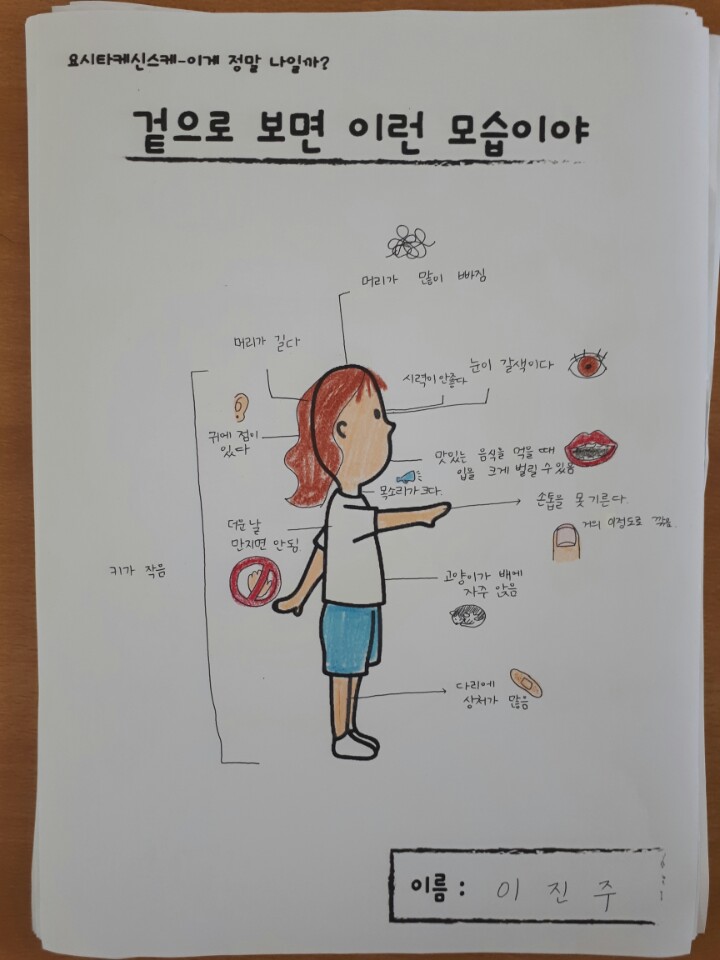 요시타케신스케-이게 정말 나일까?
겉으로 보면 이런 모습이야
머리가 많이 빠짐
머리가 길다
시력이 안좋다
눈이 갈색이다
귀에 점이
있다
맛있는 음식을 먹을 때
입을 크게 벌릴 수 있음
목소리가 크다.
손톱을 못 기른다
거의 이정도로 깎음.
더운 날
만지면 안됨.
키가 작음
고양이가 배에
자주 앉음
다리에
상처가 많음
이름 : 이 진 주